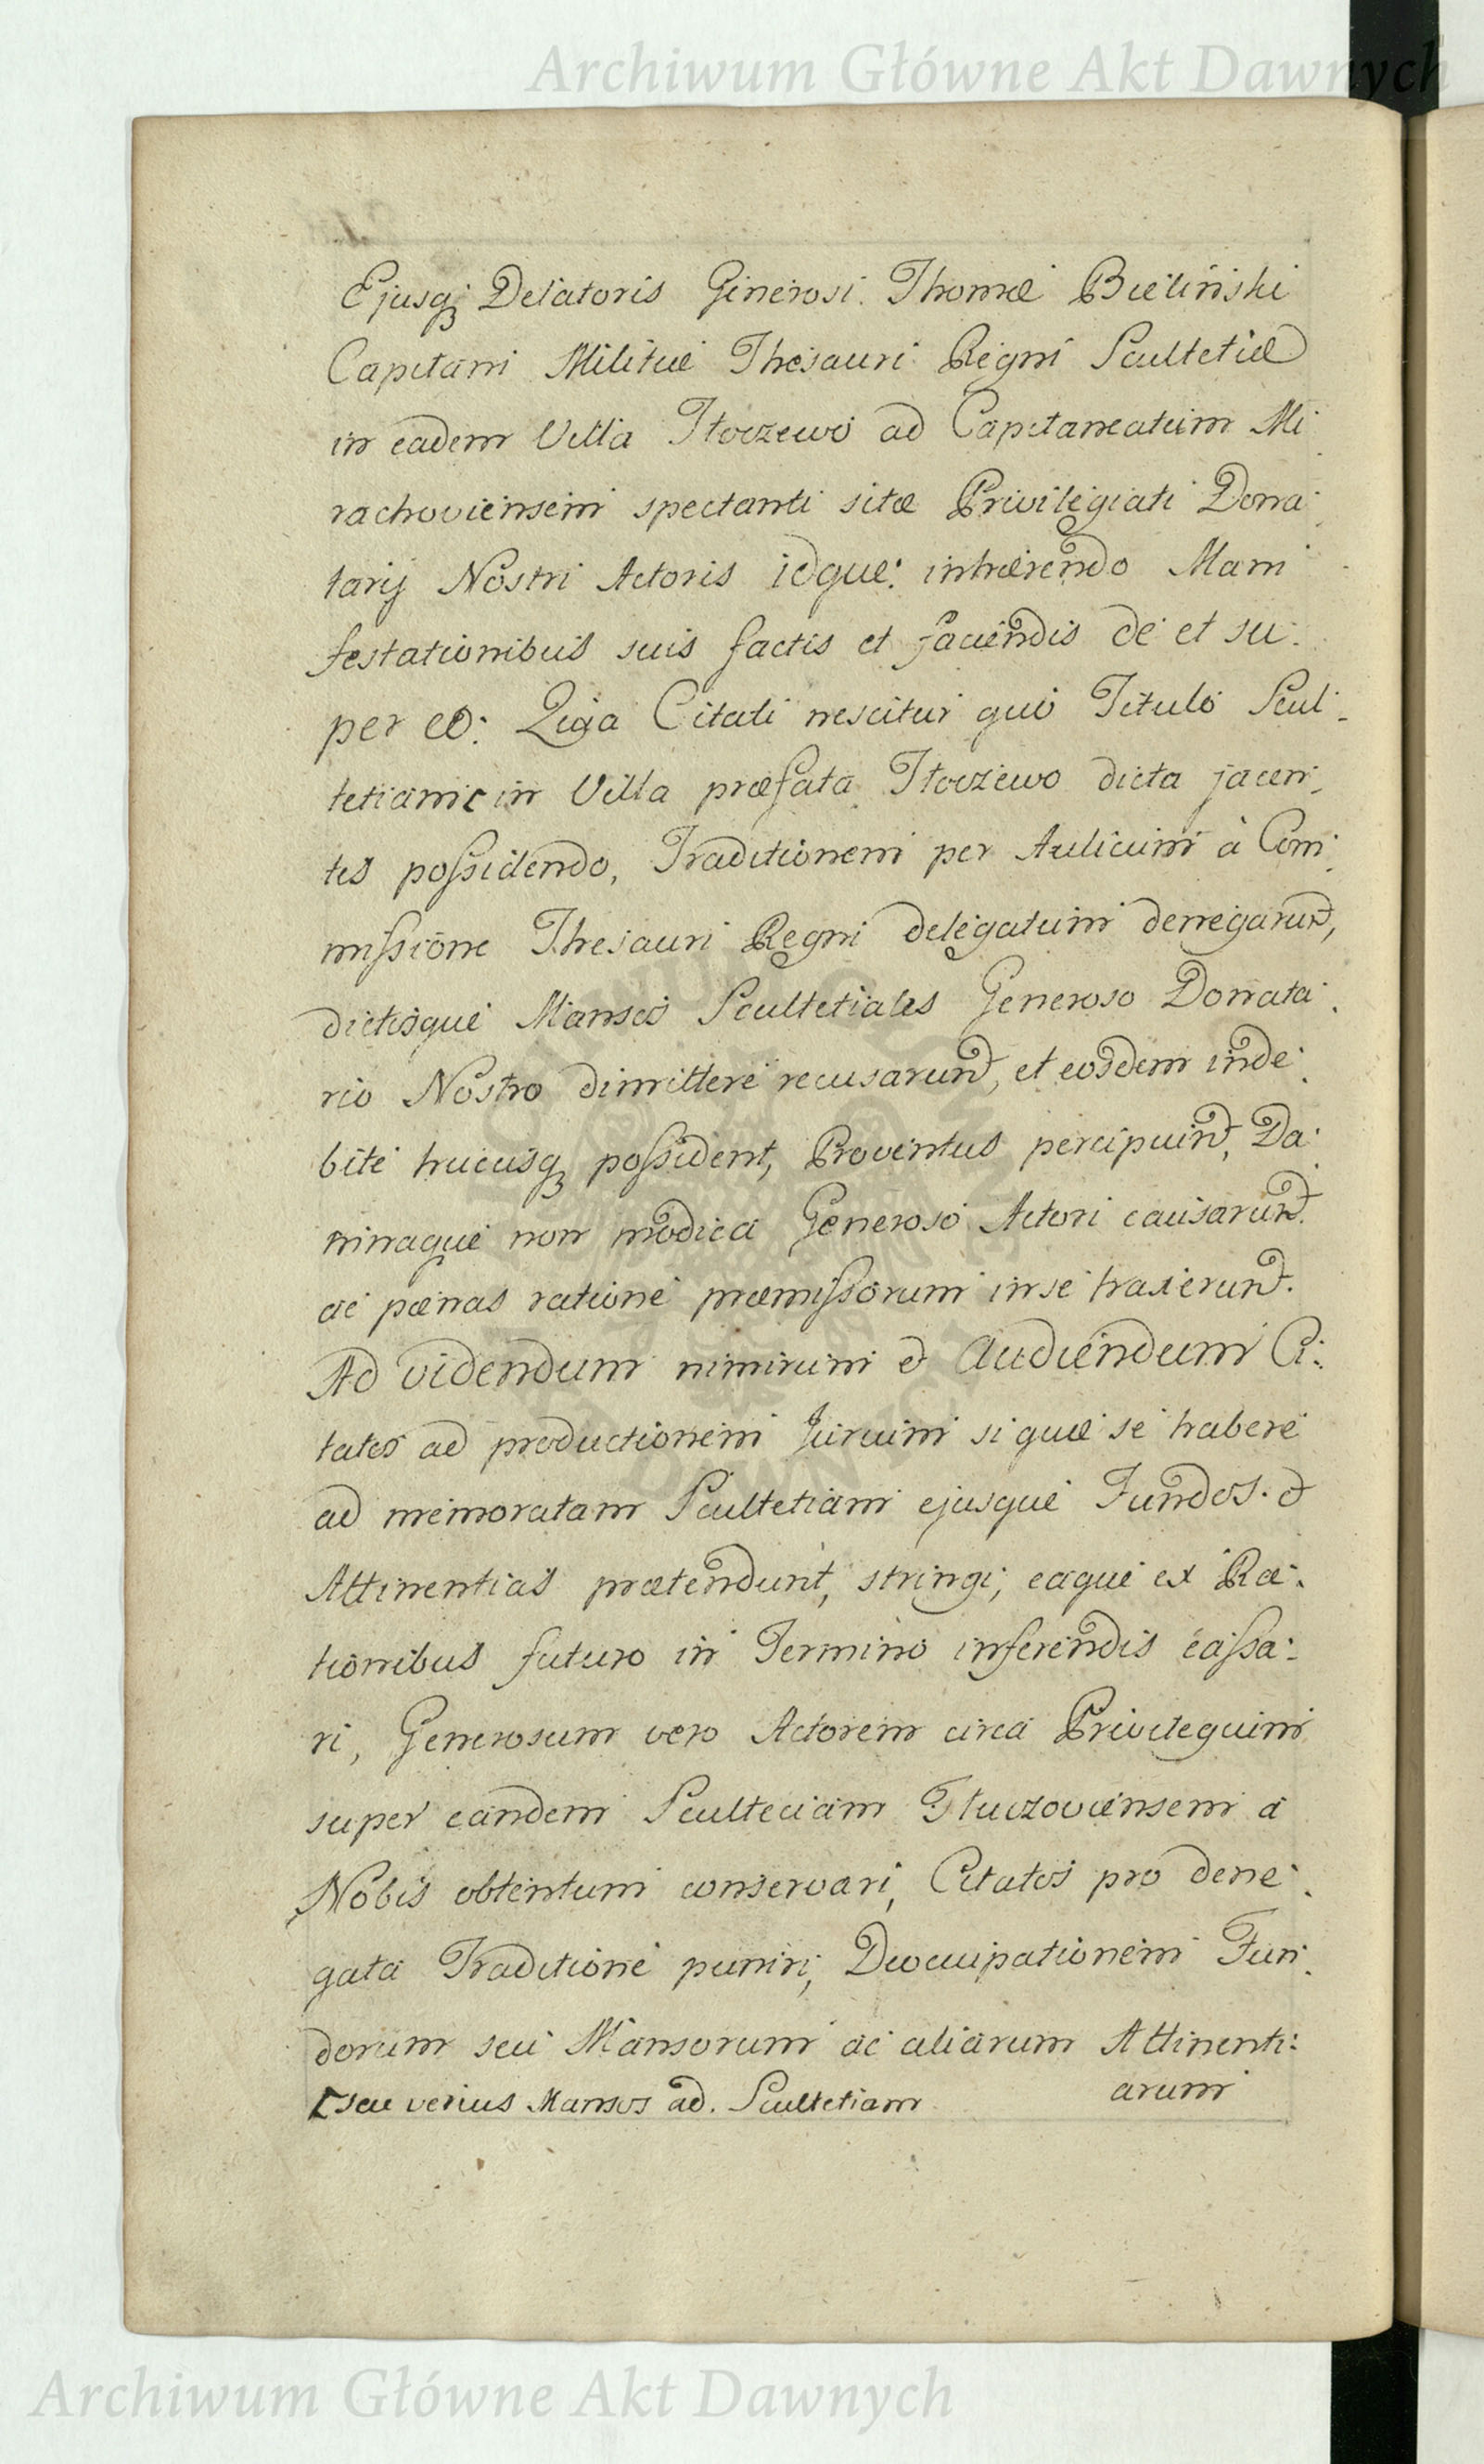 Archiwum Główne Akt Dawnych
Ejusq; Delatoris Generosi Thomæ Bieliński
Capitani Militiæ Thesauri Regni Scultetiæ
in eadem Villa Tłoczewo ad Capitaneatum Mi
rachoviensem spectanti sitæ Privilegiati Dona
tarij Nostri Actoris idque: inhærendo Mani
festationibus suis factis et faciendis de et su
per eo: Quia Citati nescitur quo Titulo Scul
tetiam in Villa præfata Tłoczewo dicta jacen
tes possidendo, Traditionem per Aulicum à Com
missione Thesauri Regni delegatum denegarunt,
dictosque Mansos Scultetiales Generoso Donata
rio Nostro dimittere recusarunt, et eosdem inde
bite hucusq; possident, Proventus percipiunt, Da
mnaque non modica Generoso Actori causarunt
ac pænas ratione præmissorum in se traxerunt.
Ad videndum nimirum et Audiendum Ci
tatos ad productionem Jurium si quæ se habere
ad memoratam Scultetiam ejusque Fundos et
Attinentias prætendunt, stringi, eaque ex Ra
tionibus futuro in Termino inferendis cassa
ri, Generosum vero Actorem circa Privilegium
super eandem Sculteciam Tłuczoviensem a
Nobis obtentum conservari, Citatos pro dene
gata Traditione puniri, Deoccupationem Fun
dorum seu Mansorum ac aliarum Attinenti
arum
seu verius Mansos ad Scultetiam
Archiwum Główne Akt Dawnych